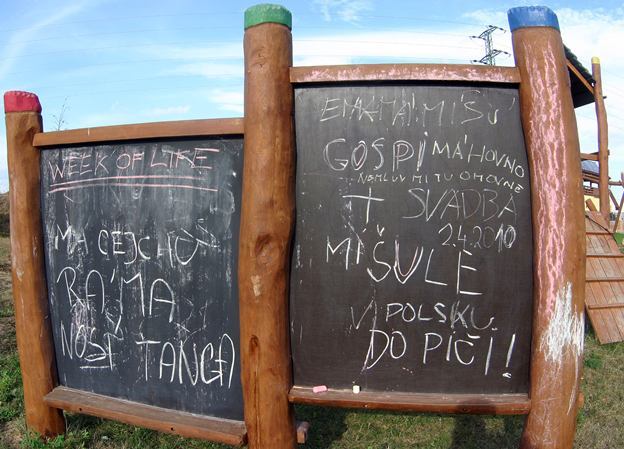 WEEK OF LIKE
MACEJCHUŠ
RÁ MA
NOSÉ TANGA
EMA MÁ MÍŠU
GOSPÍ MÁ HOVNO
NEMLUV MI TU O HOVNE
+ SVADBA
2.4.2010
MÍŠULE
V POLSKU
DO PÍČI!